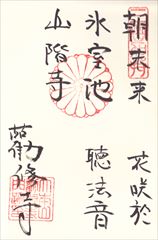 朝未来 花咲於
氷室池 聴法音
山階寺
勧修寺